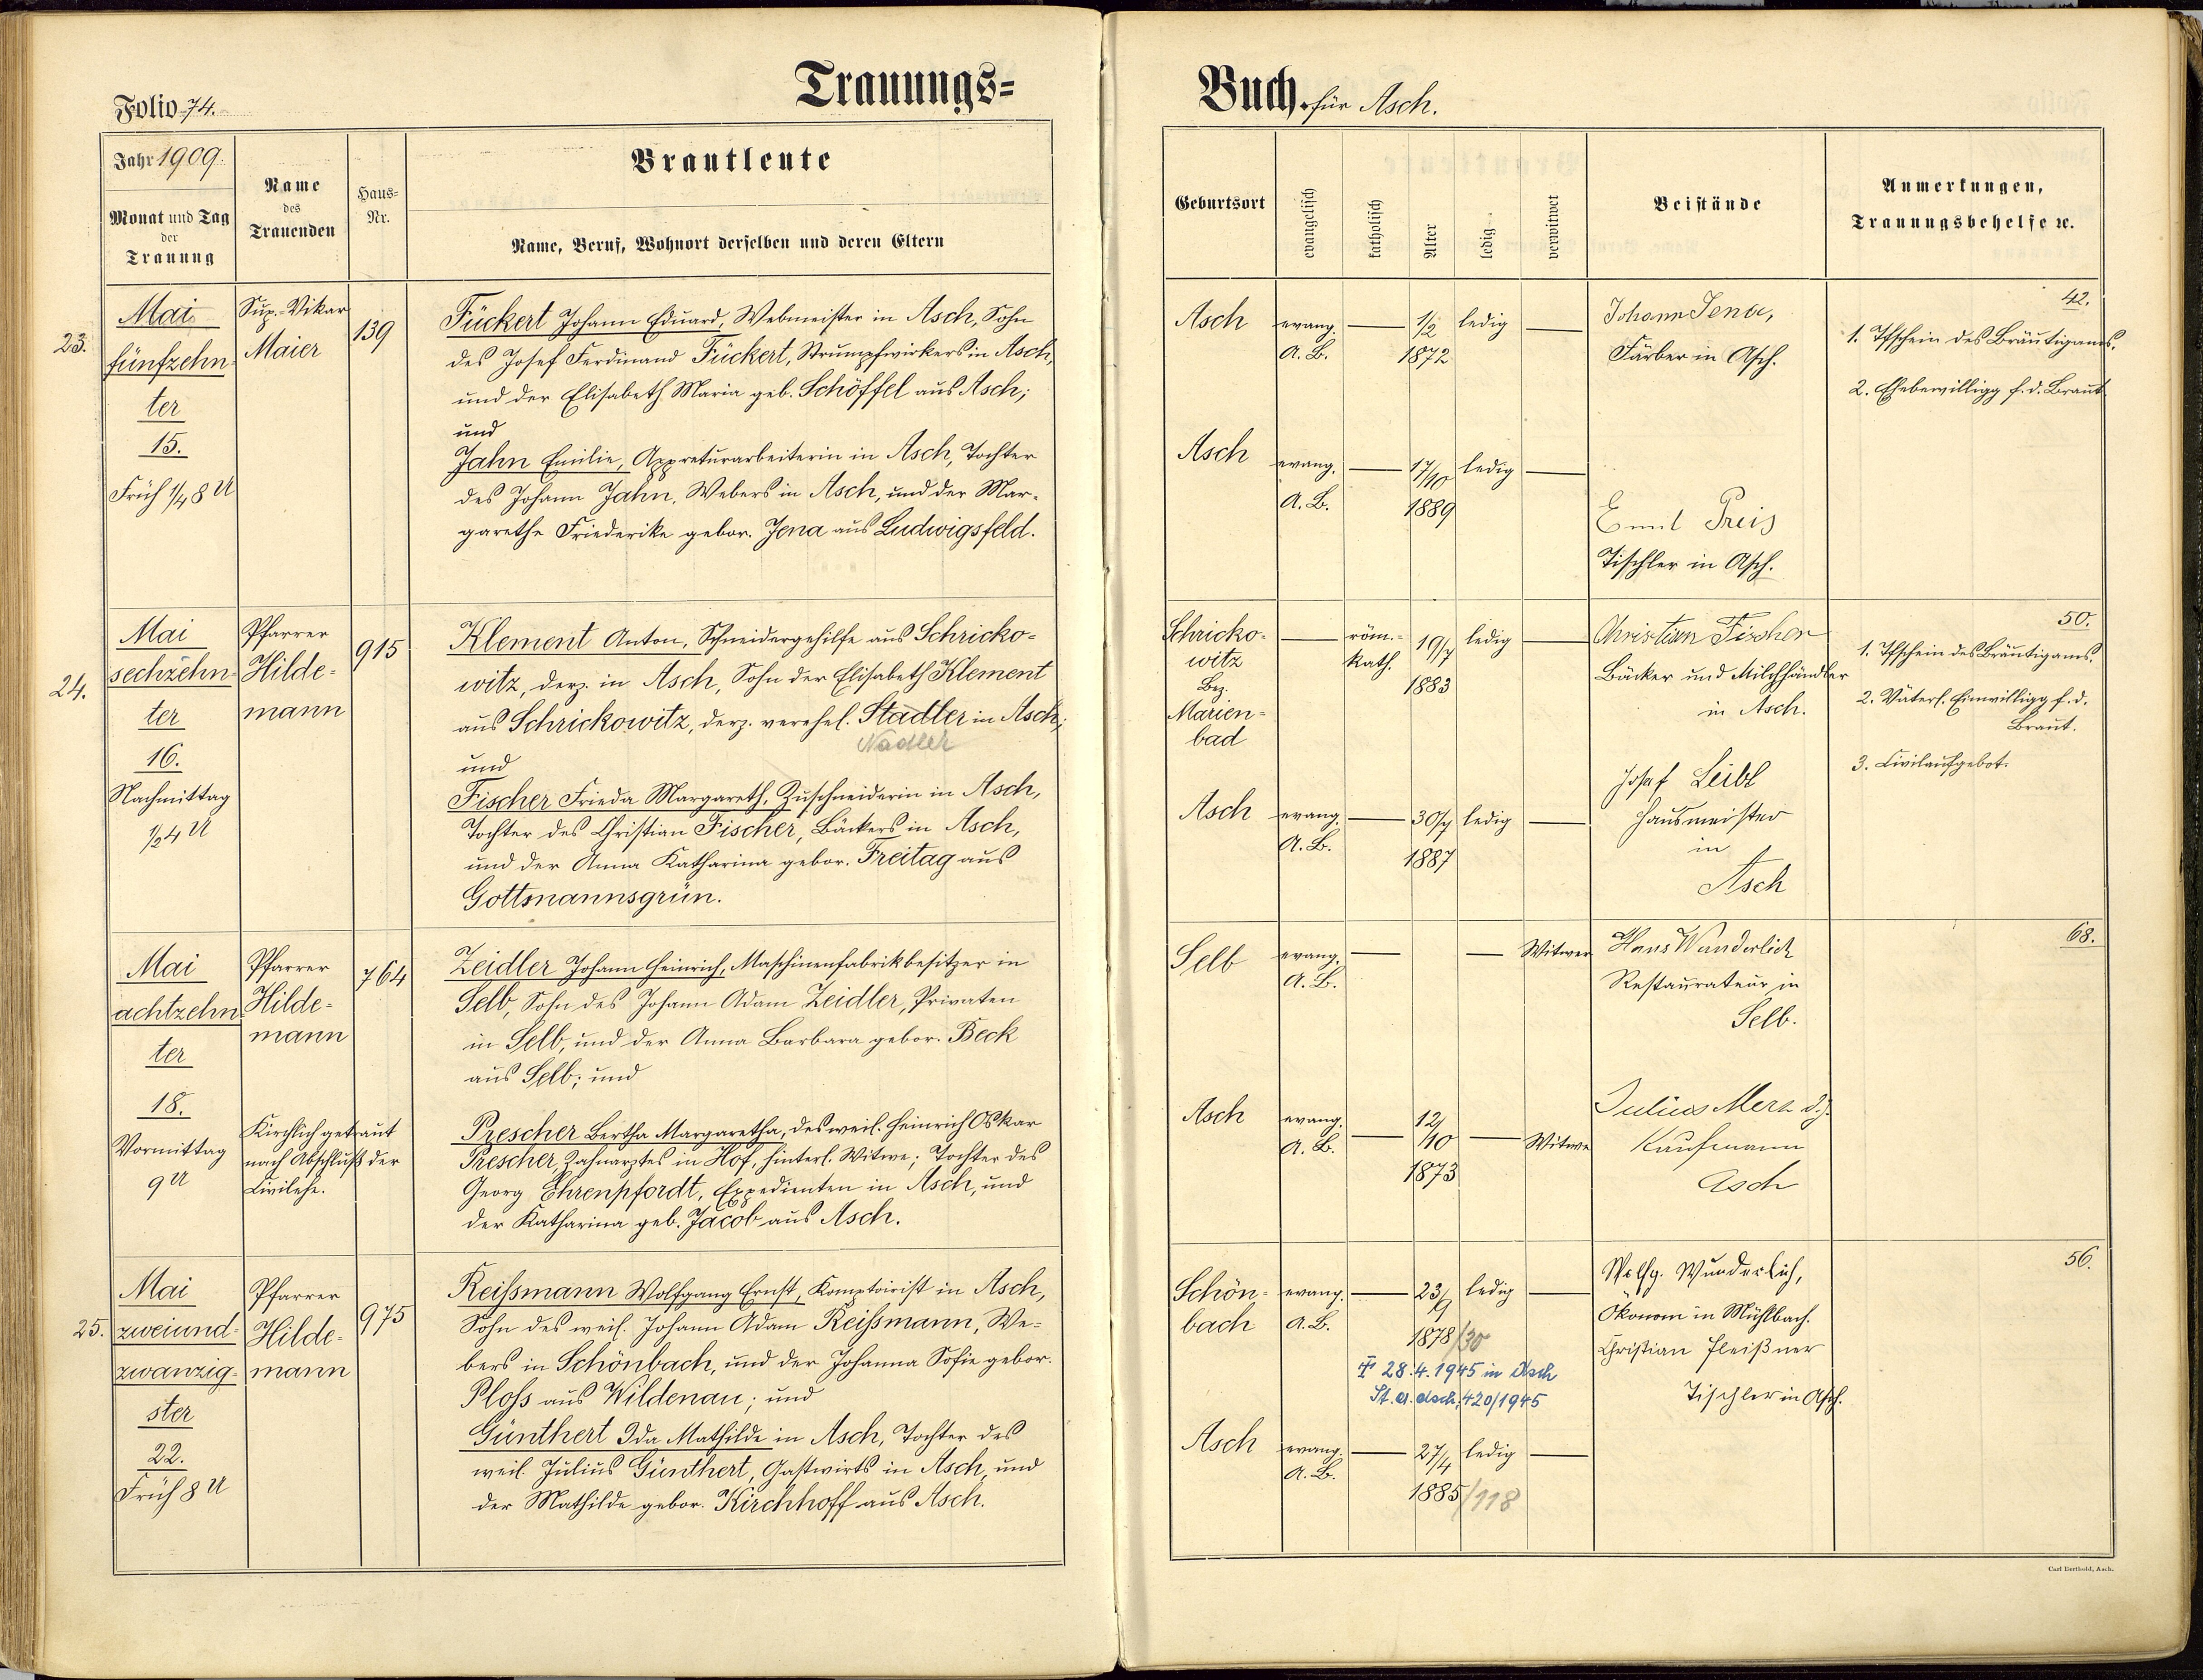 Folio 74.
Trauungs=
Buch. für Asch.
Jahr 1909.
Monat und Tag
der
Trauung
Name
des
Trauenden
Haus=
Nr.
Brautleute
Name, Beruf, Wohnort derselben und deren Eltern
Geburtsort
evangelisch
katholisch
Alter
ledig
verwitwet
Beistände
Anmerkungen,
Trauungsbehelfe ꝛc.
23.
Mai
fünfzehn-
ter
15.
Früh 1/4 8 U
Sup.-Vikar
Maier
139
Fückert Johann Eduard, Webmeister in Asch, Sohn
des Josef Ferdinand Fückert, Strumpfwirkers in Asch,
und der Elisabeth Maria geb. Schöffel aus Asch;
und
Jahn Emilie, Appreturarbeiterin in Asch, Tochter
des Johann Jahn, Webers in Asch, und der Mar-
garethe Friederike gebor. Jena aus Ludwigsfeld.
Asch
evang.
A. B.
1/2
1872
ledig
Asch
evang.
A. B.
17/10
1889
ledig
Johann Jena,
Färber in Asch.
Emil Preis
Tischler in Asch.
42.
1. Tfschein des Bräutigams.
2. Ehebewilligg f. d. Braut
24.
Mai
sechzehn-
ter
16.
Nachmittag
1/2 4 U
Pfarrer
Hilde-
mann
915
Klement Anton, Schneidergehilfe aus Schricko-
witz, derz. in Asch, Sohn der Elisabeth Klement
aus Schrickowitz, derz. verehel. Stadler in Asch;
Nadler
und
Fischer Frieda Margareth, Zuschneiderin in Asch,
Tochter des Christian Fischer, Bäckers in Asch,
und der Anna Katharina gebor. Freitag aus
Gottsmannsgrün.
Schricko-
witz
Bez.
Marien-
bad
röm.-
kath.
19/7
1883
ledig
Asch
evang.
A. B.
30/7
1887
ledig
Christian Fischer
Bäcker und Milchhändler
in Asch.
Josef Leibl
Hausmeister
in
Asch
50.
1. Tfschein des Bräutigams.
2. Väterl. Einwilligg f. d.
Braut.
3. Civilaufgebot.
Mai
achtzehn-
ter
18.
Vormittag
9 U
Pfarrer
Hilde-
mann
Kirchlich getraut
nach Abschluß der
Civilehe.
764
Zeidler Johann Heinrich, Maschinenfabrikbesitzer in
Selb, Sohn des Johann Adam Zeidler, Privaten
in Selb, und der Anna Barbara gebor. Beck
aus Selb; und
Prescher Bertha Margaretha, des weil. Heinrich Oskar
Prescher, Zahnarztes in Hof, hinterl. Witwe; Tochter des
Georg Ehrenpfordt, Expedienten in Asch, und
der Katharina geb. Jacob aus Asch.
Selb
evang.
A. B.
Witwer
Asch
evang.
A. B.
12/10
1873
Witwe
Hans Wunderlich
Restaurateur in
Selb.
Julius Merz d. J.
Kaufmann
Asch
68.
25.
Mai
zweiund-
zwanzig-
ster
22.
Früh 8 U
Pfarrer
Hilde-
mann
975
Reißmann Wolfgang Ernst, Komptoirist in Asch,
Sohn des weil. Johann Adam Reißmann, We-
bers in Schönbach, und der Johanna Sofie gebor.
Ploß aus Wildenau; und
Günthert Ida Mathilde in Asch, Tochter des
weil. Julius Günthert, Gastwirts in Asch, und
der Mathilde gebor. Kirchhoff aus Asch.
Schön-
bach
evang.
A. B.
23/9
1878/30
ledig
† 28.4.1945 in Asch
St. A. Asch, 420/1945
Asch
evang.
A. B.
27/4
1885/118
ledig
Wolfg. Wunderlich,
Ökonom in Mühlbach.
Christian Fleißner
Tischler in Asch.
56.
Carl Berthold, Asch.